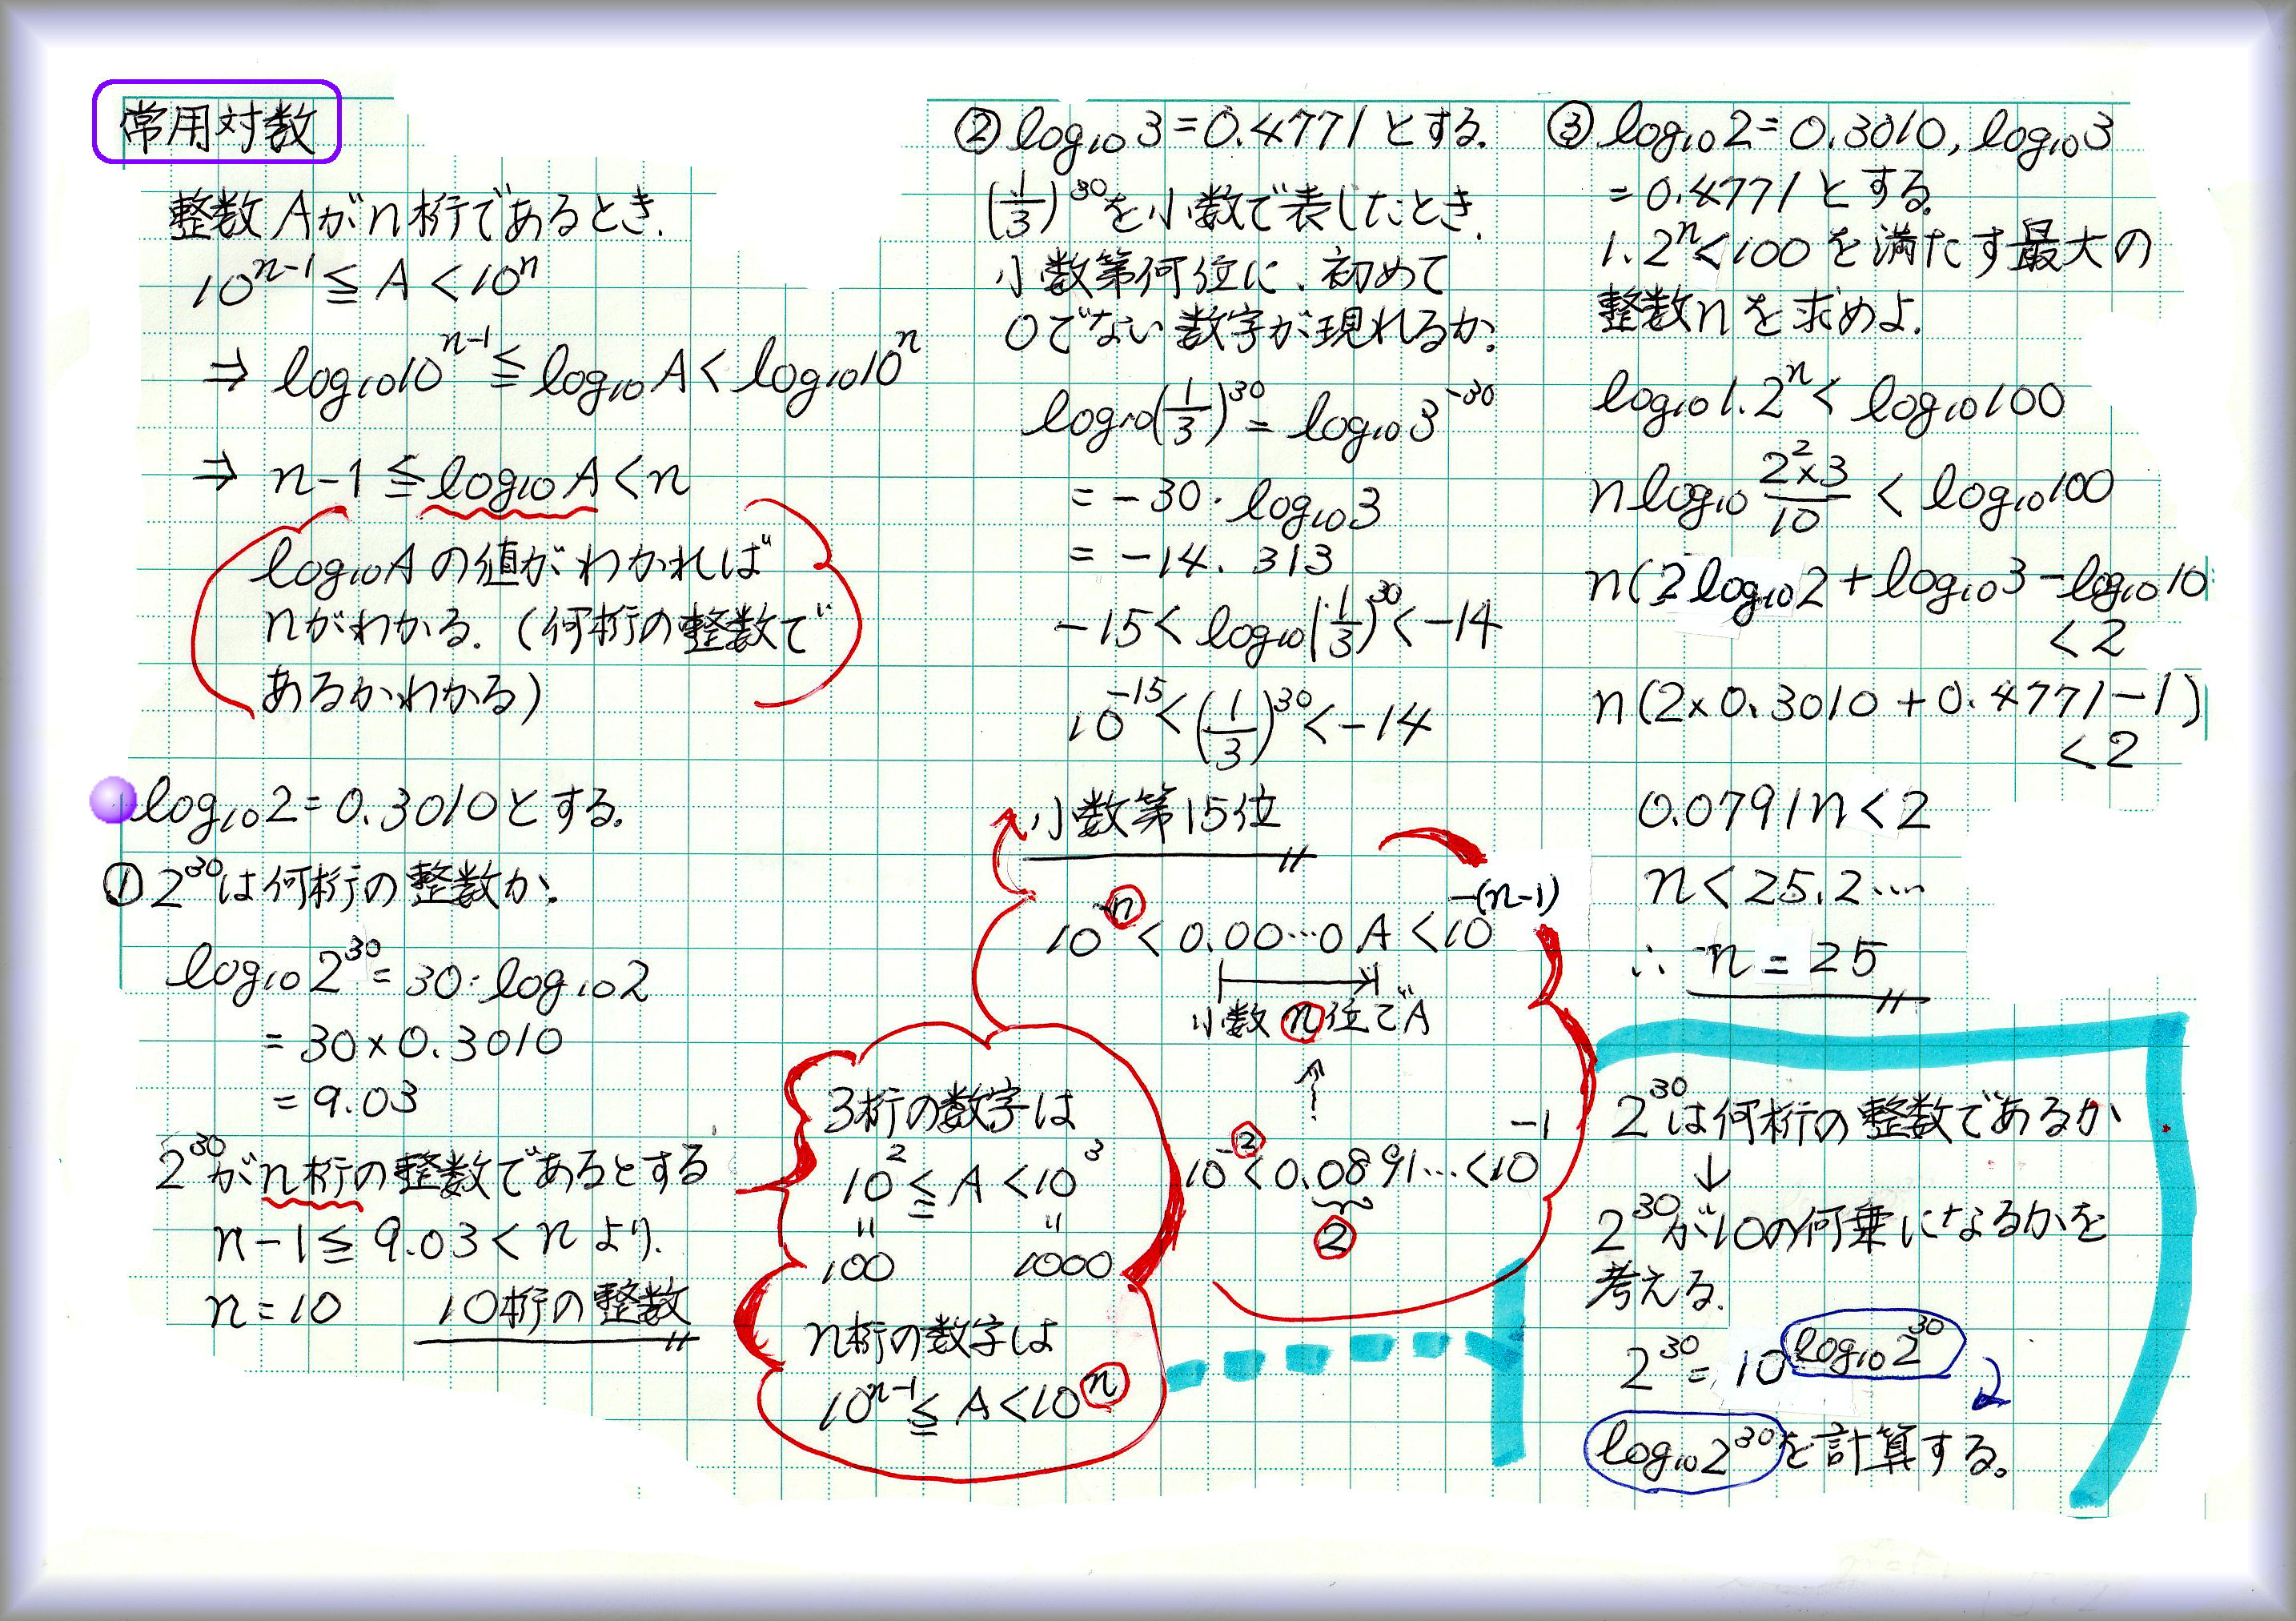 常用対数
整数Aがn桁であるとき.
10^{n-1} ≦ A < 10^n
⇒ log₁₀10^{n-1} ≦ log₁₀A < log₁₀10^n
⇒ n-1 ≦ log₁₀A < n
log₁₀Aの値がわかれば
nがわかる.(何桁の整数で
あるかわかる)
log₁₀2=0.3010とする.
①2^{30}は何桁の整数か.
log₁₀2^{30}=30·log₁₀2
=30×0.3010
=9.03
2^{30}がn桁の整数であるとする
n-1≦9.03<nより.
n=10 10桁の整数
3桁の数字は
10^2 ≦ A < 10^3
〃 〃
100 1000
n桁の数字は
10^{n-1} ≦ A < 10^n
②log₁₀3=0.4771とする.
(1/3)^{30}を小数で表したとき.
小数第何位に、初めて
0でない数字が現れるか.
log₁₀(1/3)^{30}=log₁₀3^{-30}
=-30·log₁₀3
=-14.313
-15<log₁₀(1/3)^{30}<-14
10^{-15}<(1/3)^{30}<-14
小数第15位
10^{-n}<0.00…0A<10^{-(n-1)}
小数n位でA
↑
10^{-2}<0.0891…<10^{-1}
2
③log₁₀2=0.3010,log₁₀3
=0.4771とする.
1.2^n<100を満たす最大の
整数nを求めよ.
log₁₀1.2^n<log₁₀100
nlog₁₀ 2^2×3/10 < log₁₀100
n(2log₁₀2+log₁₀3-log₁₀10
<2
n(2×0.3010+0.4771-1)
<2
0.0791n<2
n<25.2…
∴ n=25
2^{30}は何桁の整数であるか
↓
2^{30}が10の何乗になるかを
考える.
2^{30}=10^{log₁₀2^{30}}
log₁₀2^{30}を計算する。